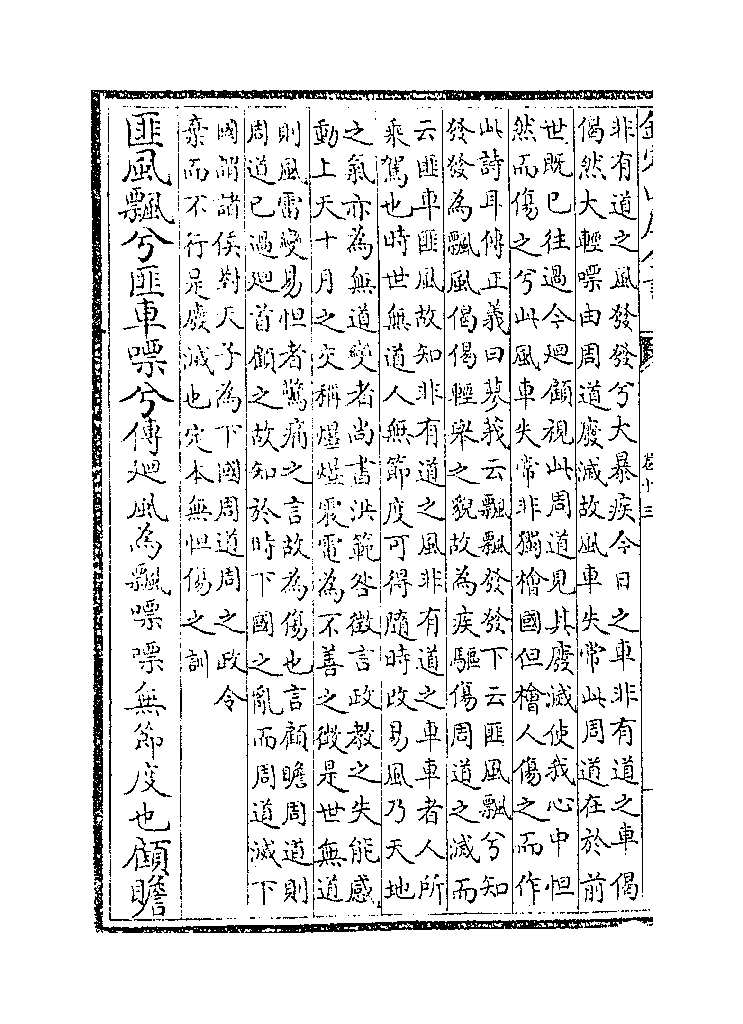 卷十三
非有道之風發發兮大暴疾今日之車非有道之車偈
偈然大輕嘌由周道廢滅故風車失常此周道在於前
世既已往過今廻顧視此周道見其廢滅使我心中怛
然而傷之兮此風車失常非獨檜國但檜人傷之而作
此詩耳傳正義曰蓼莪云飄飄發發下云匪風飄兮知
發發為飄風偈偈輕舉之貌故為疾驅傷周道之滅而
云匪車匪風故知非有道之風非有道之車車者人所
乘駕也時世無道人無節度可得隨時改易風乃天地
之氣亦為無道變者尚書洪範咎徵言政教之失能感
動上天十月之交稱爗爗震電為不善之徵是世無道
則風雷變易怛者驚痛之言故為傷也言顧瞻周道則
周道已過廻首顧之故知於時下國之亂而周道滅下
國謂諸侯對天子為下國周道周之政令
棄而不行是廢滅也定本無怛傷之訓
匪風飄兮匪車嘌兮傳廻風為飄嘌嘌無節度也顧瞻